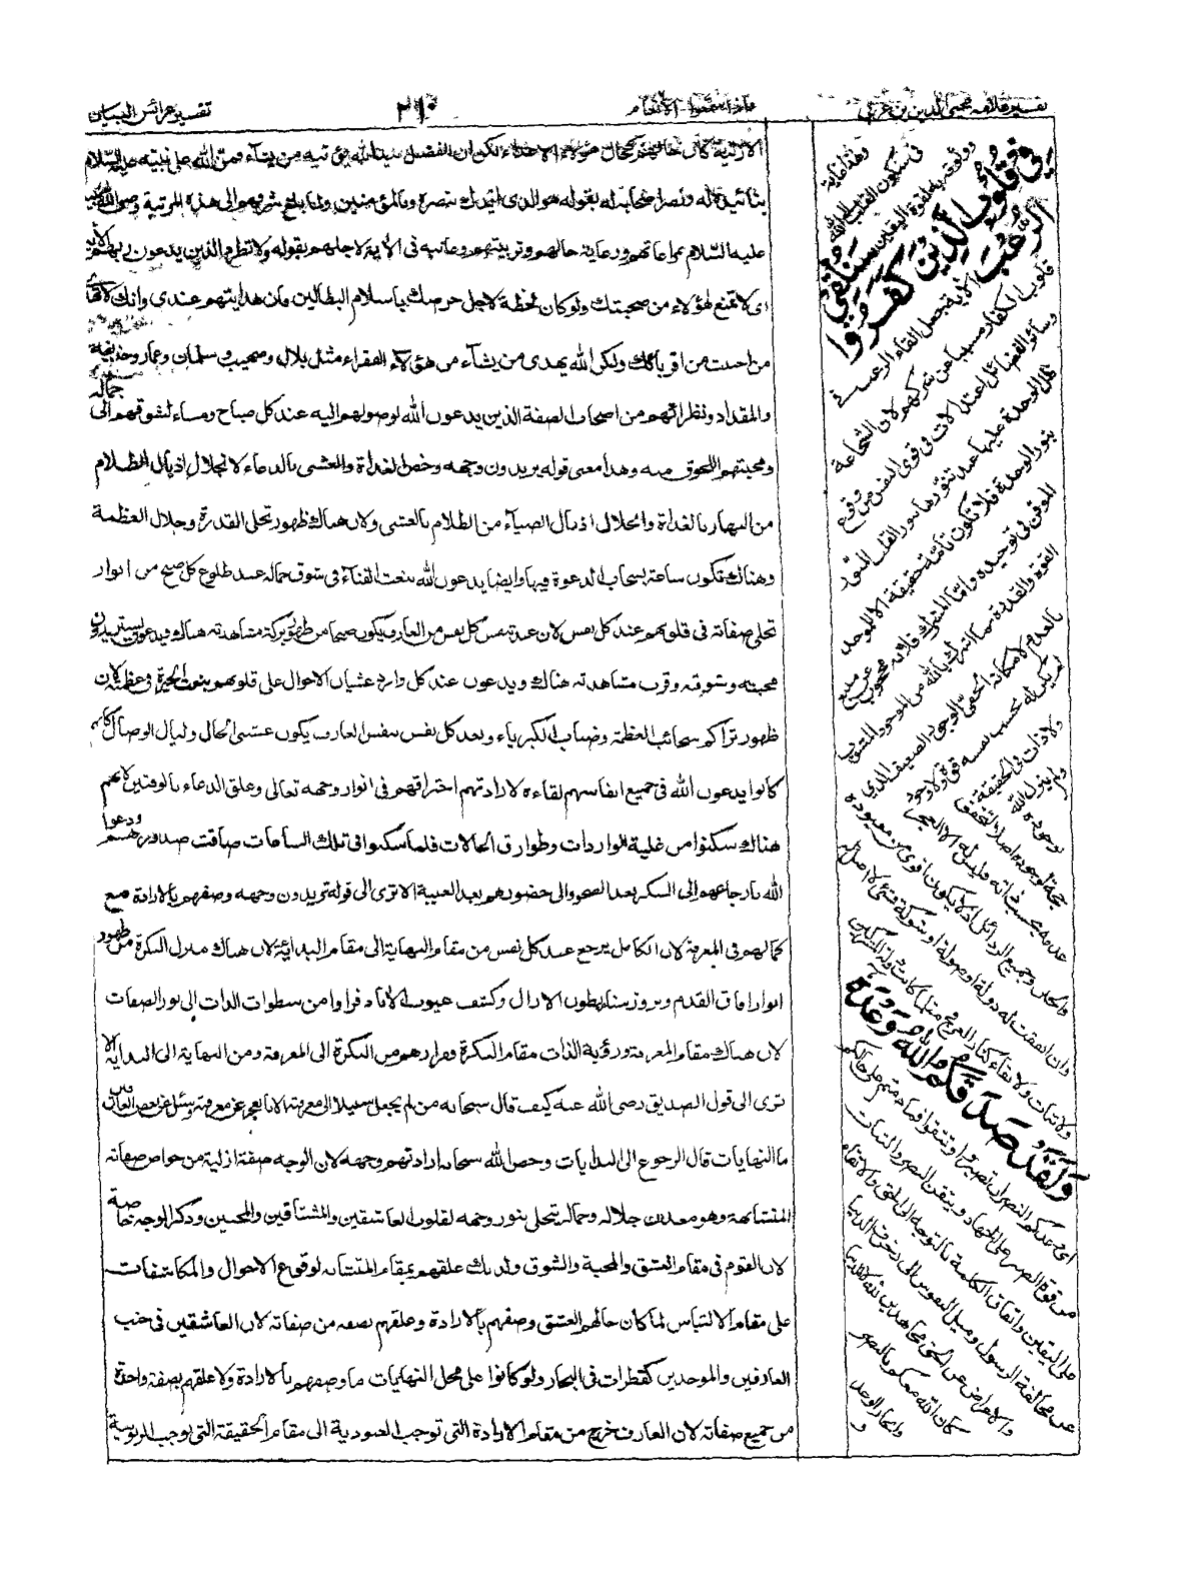 تفسير عرائس البيان
٢١٠
واذا سمعوا الانعام
تفسير محيى الدين بن عربى
الفضل بيد الله يؤتيه من يشاء فمن الله على نبيه عليه السلام
بتائيده له ونصر اصحابه له بقوله هو الذى ايدك بنصره وبالمؤمنين ولما بلغ شرفهم الى هذه المرتبة وصى الله
عليه السلام بمراعاتهم ورعاية حالهم وتربيتهم وعاتبه فى الآية لاجلهم بقوله ولا تطرد الذين يدعون ربهم
اى لا تمنع هؤلاء من صحبتك ولو كان لحظة لاجل حرصك باسلام البطالين فان هدايتهم عندى وانك لا تهدى
من احببت من اقربائك ولكن الله يهدى من يشاء من هؤلاء الفقراء مثل بلال وصهيب وسلمان وعمار وحذيفة
والمقداد ونظرائهم من اصحاب الصفة الذين يدعون الله لوصولهم اليه عند كل صباح ومساء لشوقهم الى جماله
ومحبتهم اللحوق منه وهذا معنى قوله يريدون وجهه وخص الغداة والعشى بالدعاء لانجلال اذيال الظلام
من النهار بالغداة وانجلال اذيال الضياء من الظلام بالعشى ولان هناك ظهور تجلى القدرة وجلال العظمة
وهناك تكون ساعة استجاب الدعوة فيها وايضا يدعون الله بنعت الفناء فى شوق جماله عند طلوع كل صبح من انوار
تجلى صفاته فى قلوبهم عند كل نفس لان عند تنفس كل نفس من العارف يكون صبحا من ظهور بركة مشاهدته هناك فيدعون يستزيدون
محبته وشوقه وقرب مشاهدته هناك ويدعون عند كل وارد عشيان الاحوال على قلوبهم بنعت الحيرة فى عظمته لان
ظهور تراكم سحائب العظمة وضباب الكبرياء وبعد كل نفس بنفس العارف يكون عشى الحال وليال الوصال
كانوا يدعون الله فى جميع انفاسهم لقاءه لارادتهم احتراقهم فى انوار وجهه تعالى وعلق الدعاء بالوقتين لانهم
هناك سكنوا من غلبة الواردات وطوارق الحالات فلما سكنوا فى تلك الساعات ضاقت صدورهم ودعوا
الله بارجاعهم الى السكر بعد الصحو والى حضورهم بعد الغيبة الا ترى الى قوله تريدون وجهه وصفهم بالارادة مع
كمالهم فى المعرفة لان الكامل يرجع عند كل نفس من مقام النهاية الى مقام البداية لان هناك منازل النكرة من ظهور
انوار افاق القدم وبروز سنا بطون الازال وكشف عيوب الاباد فروا من سطوات الذات الى نور الصفات
لان هناك مقام المعرفة ورؤية الذات مقام النكرة وفرارهم من النكرة الى المعرفة ومن النهاية الى البداية الا
ترى الى قول الصديق رضى الله عنه كيف قال سبحانه من لم يجعل سبيلا الى معرفته الا بالعجز عن معرفته وسئل عن بعض العارفين
ما النهايات قال الرجوع الى البدايات وخص الله سبحانه ارادتهم وجهه لان الوجه صفة ازلية من خواص صفاته
المتشابهة وهو معدن جلاله وجماله تجلى بنور وجهه لقلوب العاشقين والمشتاقين والمحبين وذكر الوجه خاصة
لان القوم فى مقام العشق والمحبة والشوق ولذلك علقهم بمقام المتشابه لوقوع الاحوال والمكاشفات
على مقام الالتباس لما كان حالهم العشق وصفهم بالارادة وعلقهم بصفة من صفاته لان العاشقين فى جنب
العارفين والموحدين كقطرات فى البحار ولو كانوا على محل النهايات ما وصفهم بالارادة ولا علقهم بصفة واحدة
من جميع صفاته لان العارف خرج من مقام الارادة التى توجب العبودية الى مقام الحقيقة التى يوجب الربوبية
وهذا غاية
فى سكون القلب الى الله
ووثوقه به لقوة اليقين سَنُلْقِي
فِي قُلُوبِ الَّذِينَ كَفَرُوا
الرُّعْبَ الآية جعل القاء الرعب فى
قلوب الكفار مسببا عن شركهم لان الشجاعة
وسائر الفضائل اعتدالات فى قوى النفس من وقوع
ظل الوحدة عليها عند تنورها بنور القلب المنور
بنور الوحدة فلا تكون تامة حقيقة الا للموحد
الموقن فى توحيده واما المشرك فلانه محجوب عن منبع
القوة والقدرة بما اشرك بالله من الموجود المشوب
بالعدم لامكانه الخفى الوجود الضعيف الذى
لم يكن له بحسب نفسه قوة ولا وجود
ولا ذات فى الحقيقة
ولم ينزل الله
بوجوده
حجة لوجوده اصلا لتحقق
عدمه بحسب ذاته فليس له الا العجز
والجبن وجميع الرذائل اذ لا يكون اقوى من معبوده
وان اتفقت له دولة او صولة او شوكة فشئ لا اصل له
ولا ثبات ولا بقاء كنار العرفج مثلها كانت دولة المشركين
وَلَقَدْ صَدَقَكُمُ اللَّهُ وَعْدَهُ
اى وعدكم النصر ان تصبروا وتتقوا فما دمتم على حالكم
من قوة الصبر على الجهاد وتيقن النصر والثبات
على اليقين واتفاق الكلمة بالتوجه الى الحق والاتقاء
عن مخالفة الرسول وميل النفوس الى زخرف الدنيا
والاعراض عن الحق مجاهدين لله لا للدنيا
كان الله معكم بالنصر
وانجاز الوعد
و